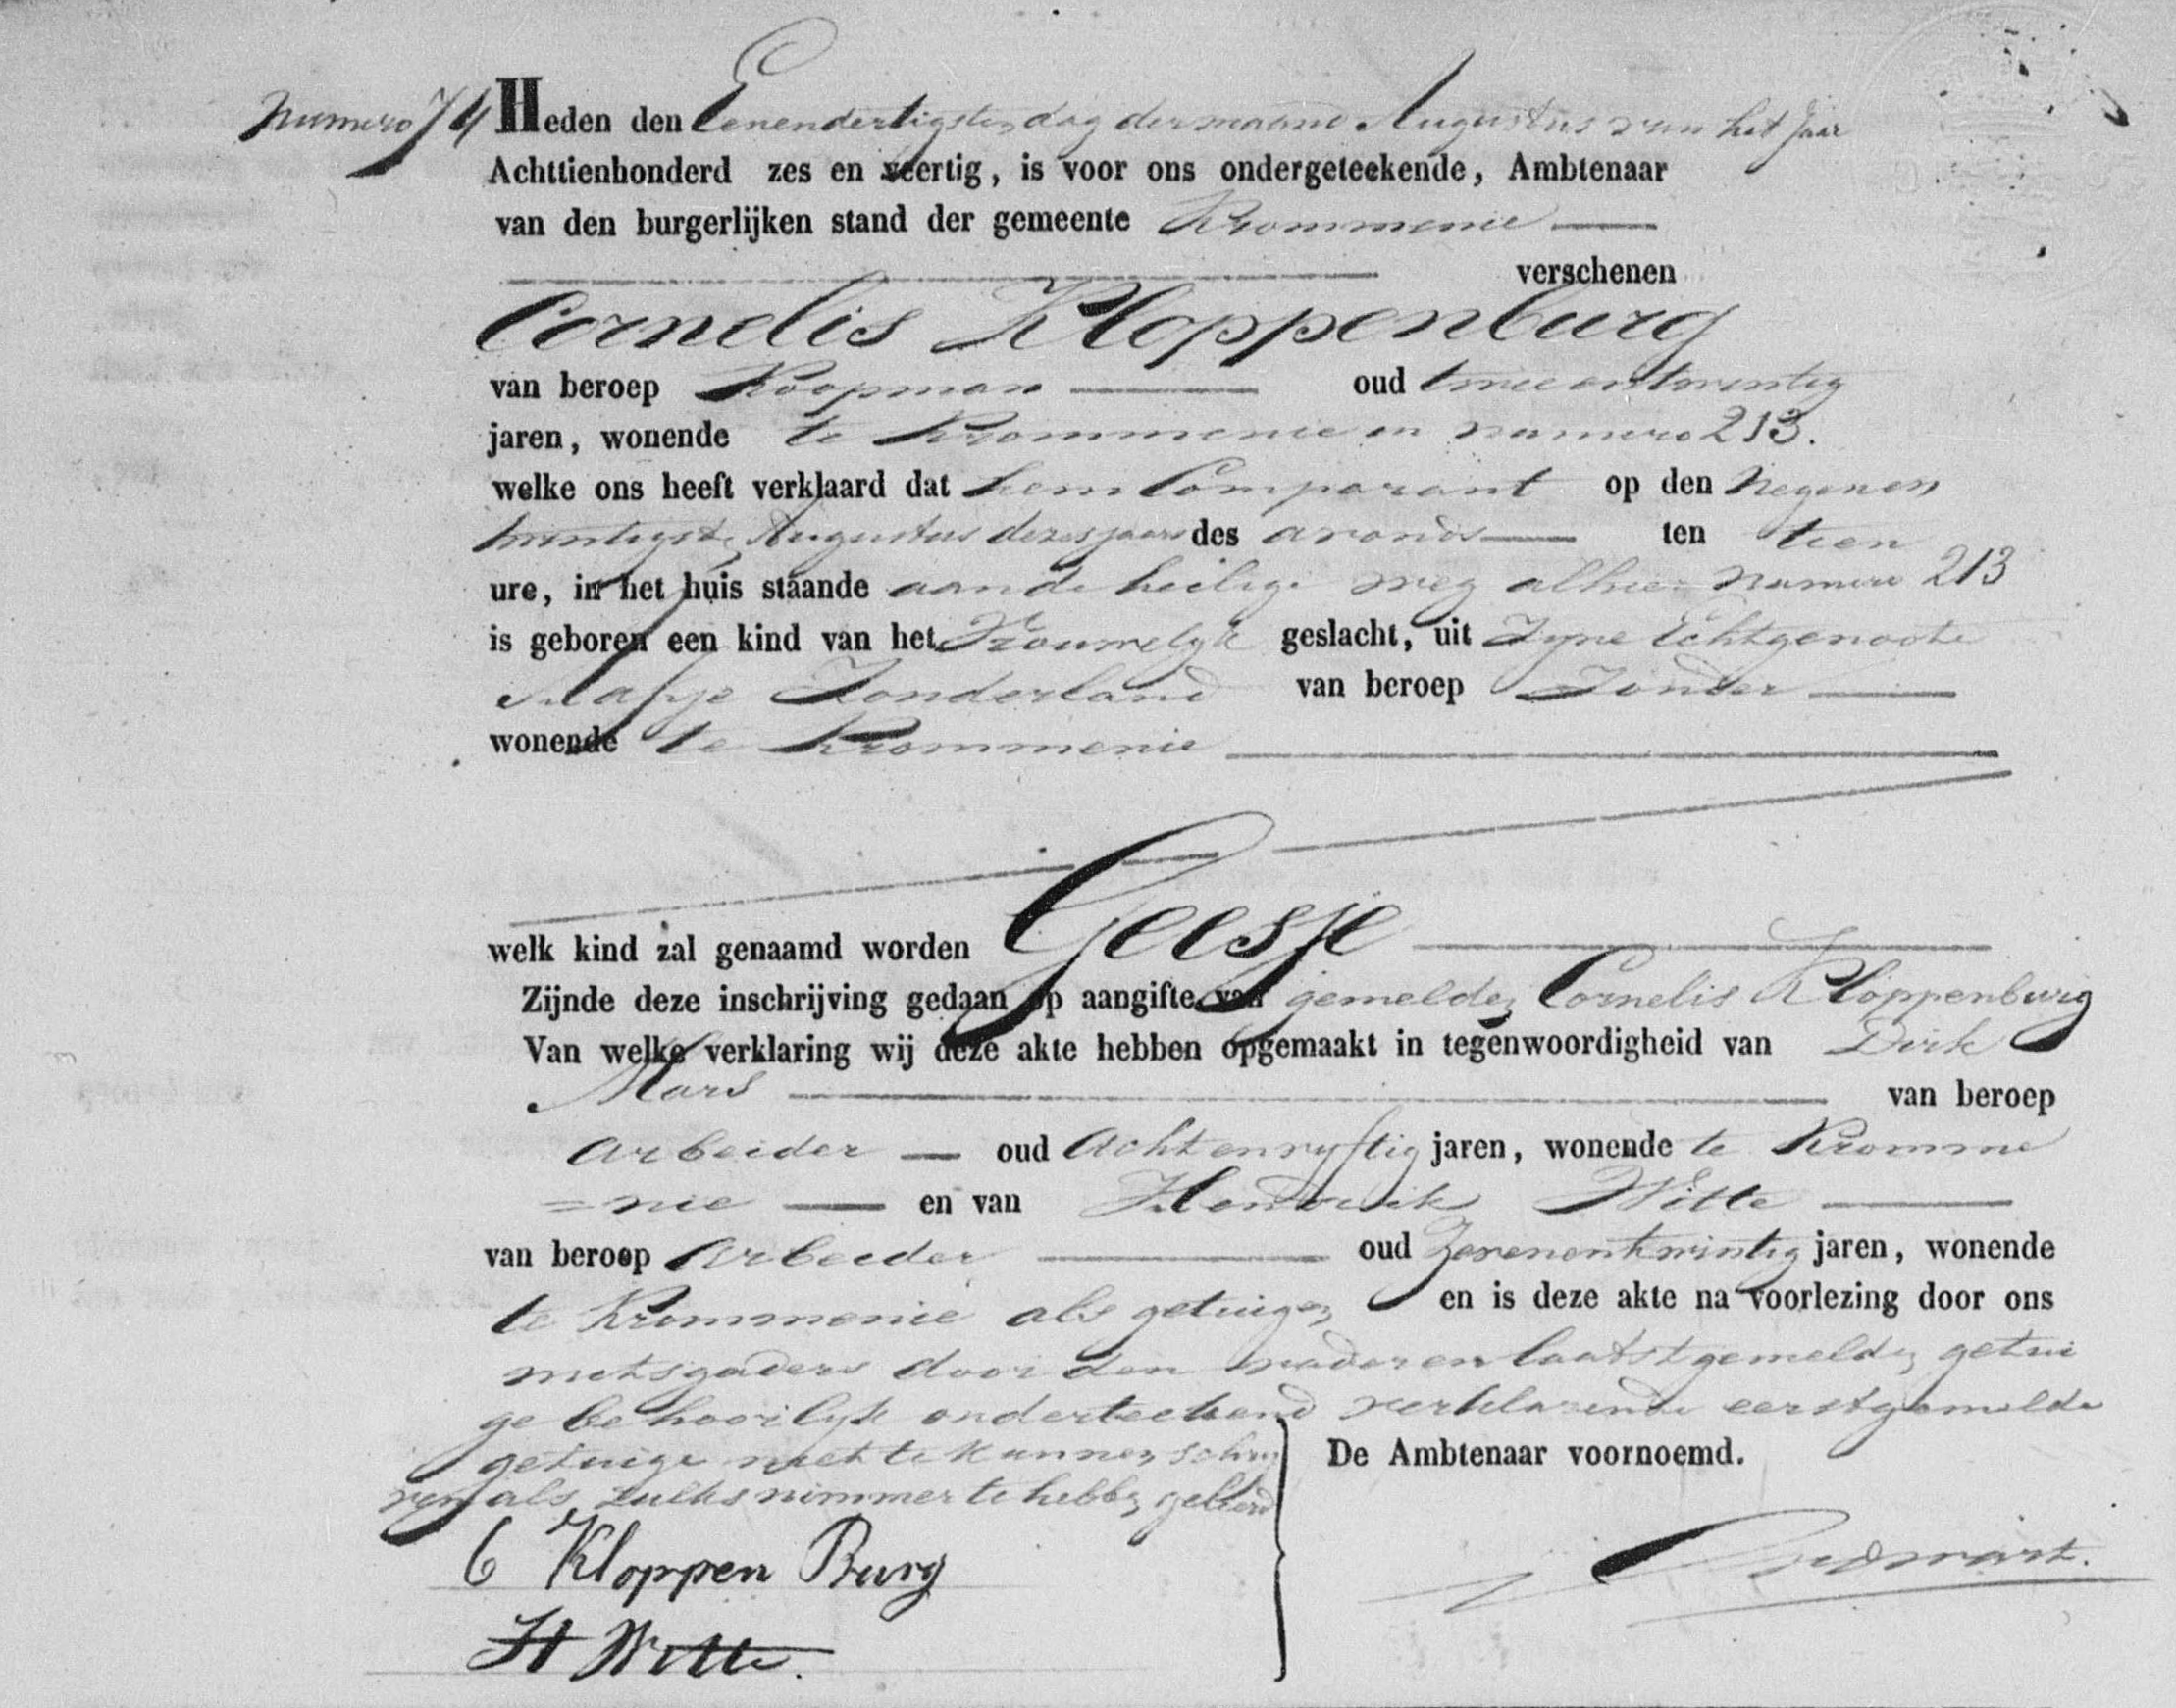 Numero 74 Heden den Eenendertigsten dag der maand Augustus van het Jaar
Achttienhonderd zes en veertig, is voor ons ondergeteekende, Ambtenaar
van den burgerlijken stand der gemeente Krommenie
verschenen
Cornelis Kloppenburg
van beroep Koopman oud tweeentwintig
jaren, wonende te Krommenie in numero 213.
welke ons heeft verklaard dat hem Comparant op den negenen
twintigste Augustus dezes jaars des avonds ten tien
ure, in het huis staande aan de heilige weg alhier numero 213
is geboren een kind van het Vrouwelyk geslacht, uit Zyne Echtgenoote
Aafje Zonderland van beroep Zonder
wonende te Krommenie
welk kind zal genaamd worden Geesje
Zijnde deze inschrijving gedaan op aangifte van gemelden Cornelis Kloppenburg
Van welke verklaring wij deze akte hebben opgemaakt in tegenwoordigheid van Dirk
Mars van beroep
arbeider oud Achtenvyftig jaren, wonende te Kromme
=nie en van Hendrik Witte
van beroep Arbeider oud Zevenentwintig jaren, wonende
te Krommenie als getuigen en is deze akte na voorlezing door ons
mitsgaders door den vader en laatstgemelden getui
ge behoorlyk onderteekend verklarende eerstgemelde
getuige niet te kunnen schry
ven als zulks nimmer te hebben geleerd
De Ambtenaar voornoemd.
C Kloppen Burg
H Witte.